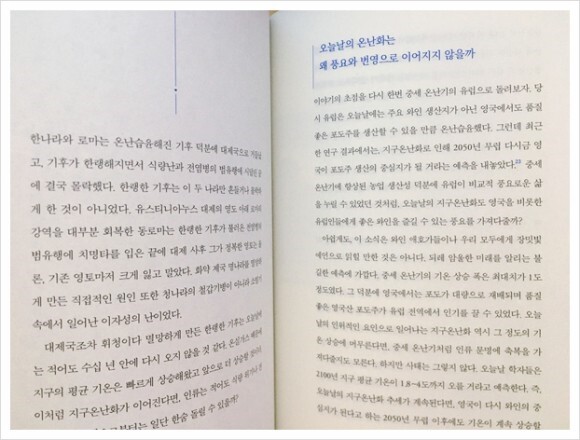 한나라와 로마는 온난습윤해진 기후 덕분에 대제국으로
고, 기후가 한랭해지면서 식량난과 전염병의 범유행에 시달린
에 결국 몰락했다. 한랭한 기후는 이 두 나라만 흔들거나
게 한 것이 아니었다. 유스티니아누스 대제의 명도 아래
강역을 대부분 회복한 동로마는 한랭한 기후가 불러온 전염병의
범유행에 치명타를 입은 끝에 대제 사후 그가 정복한 땅은 물
론, 기존 영토마저 크게 잃고 말았다. 화약 제국 명나라를
게 만든 직접적인 원인 또한 청나라의 철갑기병이 아니라
속에서 일어난 이자성의 난이었다.
대제국조차 휘청이다 멸망하게 만든 한랭한 기후는 오늘날에
는 적어도 수십 년 안에 다시 오지 않을 것 같다. 온실가스 때문에
지구의 평균 기온은 빠르게 상승해왔고 앞으로 더 상승할
이처럼 지구온난화가 이어진다면, 인류는 적어도 식량
일단 한숨 돌릴 수 있을까?
오늘날의 온난화는
왜 풍요와 번영으로 이어지지 않을까
이야기의 초점을 다시 한번 중세 온난기의 유럽으로 돌려보자. 당
시 유럽은 오늘날에는 주요 와인 생산지가 아닌 영국에서도 품질
좋은 포도주를 생산할 수 있을 만큼 온난습윤했다. 그런데 최근
한 연구 결과에서는, 지구온난화로 인해 2050년 무렵 다시금 영
국이 포도주 생산의 중심지가 될 거라는 예측을 내놓았다. 중세
온난기에 향상된 농업 생산성 덕분에 유럽이 비교적 풍요로운 삶
을 누릴 수 있었던 것처럼, 오늘날의 지구온난화도 영국을 비롯한
유럽인들에게 좋은 와인을 즐길 수 있는 풍요를 가져다줄까?
아쉽게도, 이 소식은 와인 애호가들이나 우리 모두에게 장밋빛
예언으로 읽힐 만한 것은 아니다. 되레 암울한 미래를 알리는 불
길한 예측에 가깝다. 중세 온난기의 기온 상승 폭은 최대치가 1도
정도였다. 그 덕분에 영국에서는 포도가 대량으로 재배되며 품질
좋은 영국산 포도주가 유럽 전역에서 인기를 끌 수 있었다. 오늘
날의 인위적인 요인으로 일어나는 지구온난화 역시 그 정도의 기
온 상승에 머무른다면, 중세 온난기처럼 인류 문명에 축복을 가
져다줄지도 모른다. 하지만 사태는 그렇지 않다. 오늘날 학자들은
2100년 지구 평균 기온이 1.8~4도까지 오를 거라고 예측한다. 즉,
오늘날의 지구온난화 추세가 계속된다면, 영국이 다시 와인의 중
심지가 된다고 하는 2050년 무렵 이후에도 기온이 계속 상승할